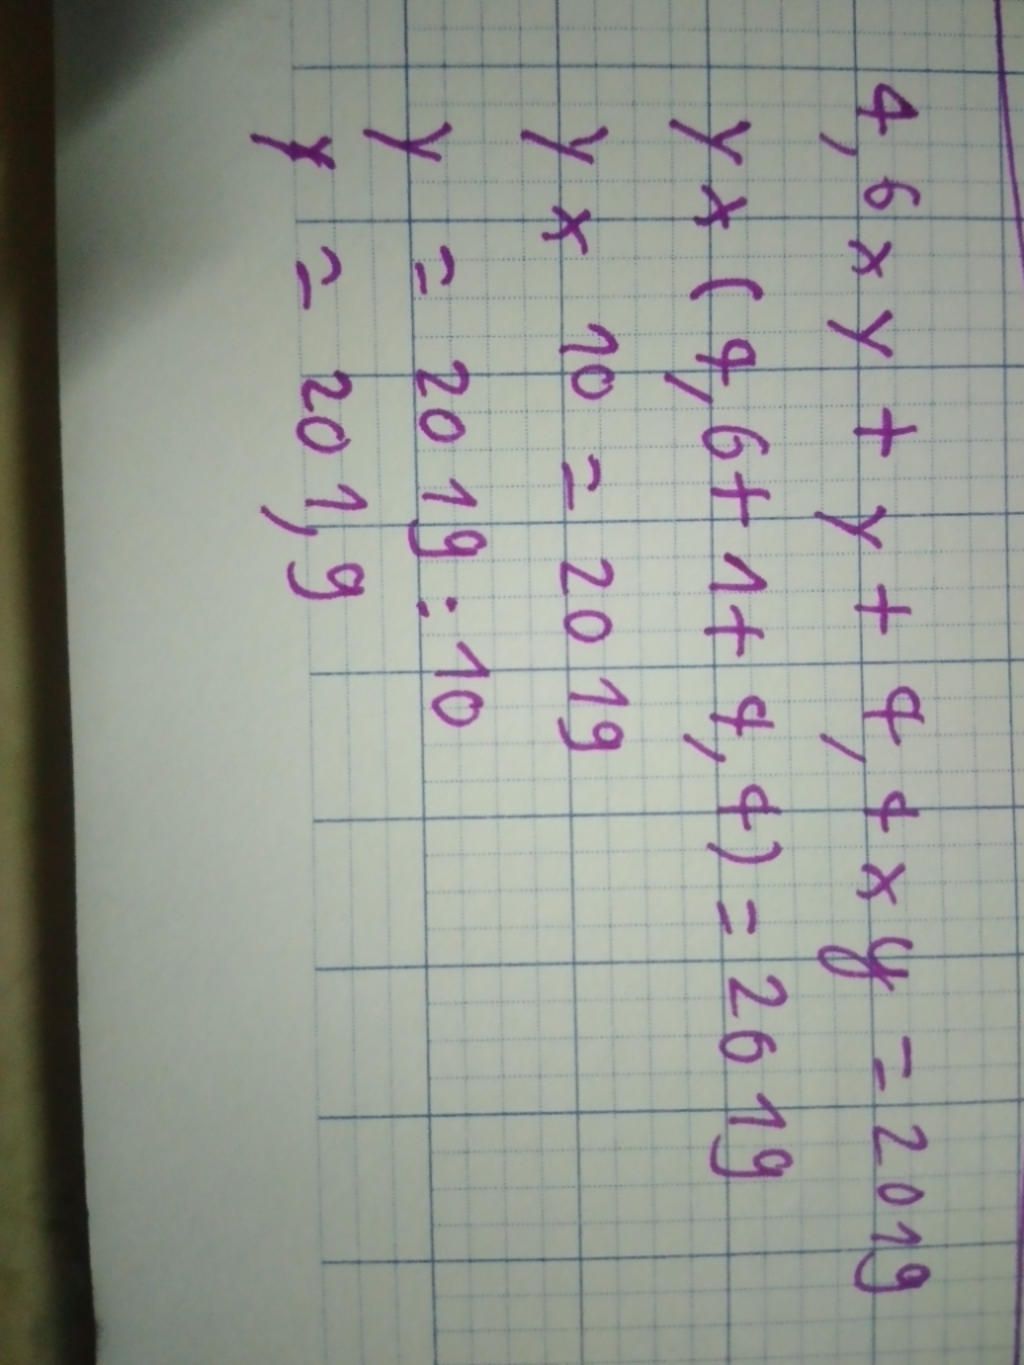 4,6 x y + y + 4,4 x y = 2019
y x (4,6 + 1 + 4,4) = 2619
y x 10 = 2019
y = 2019 : 10
y = 201,9